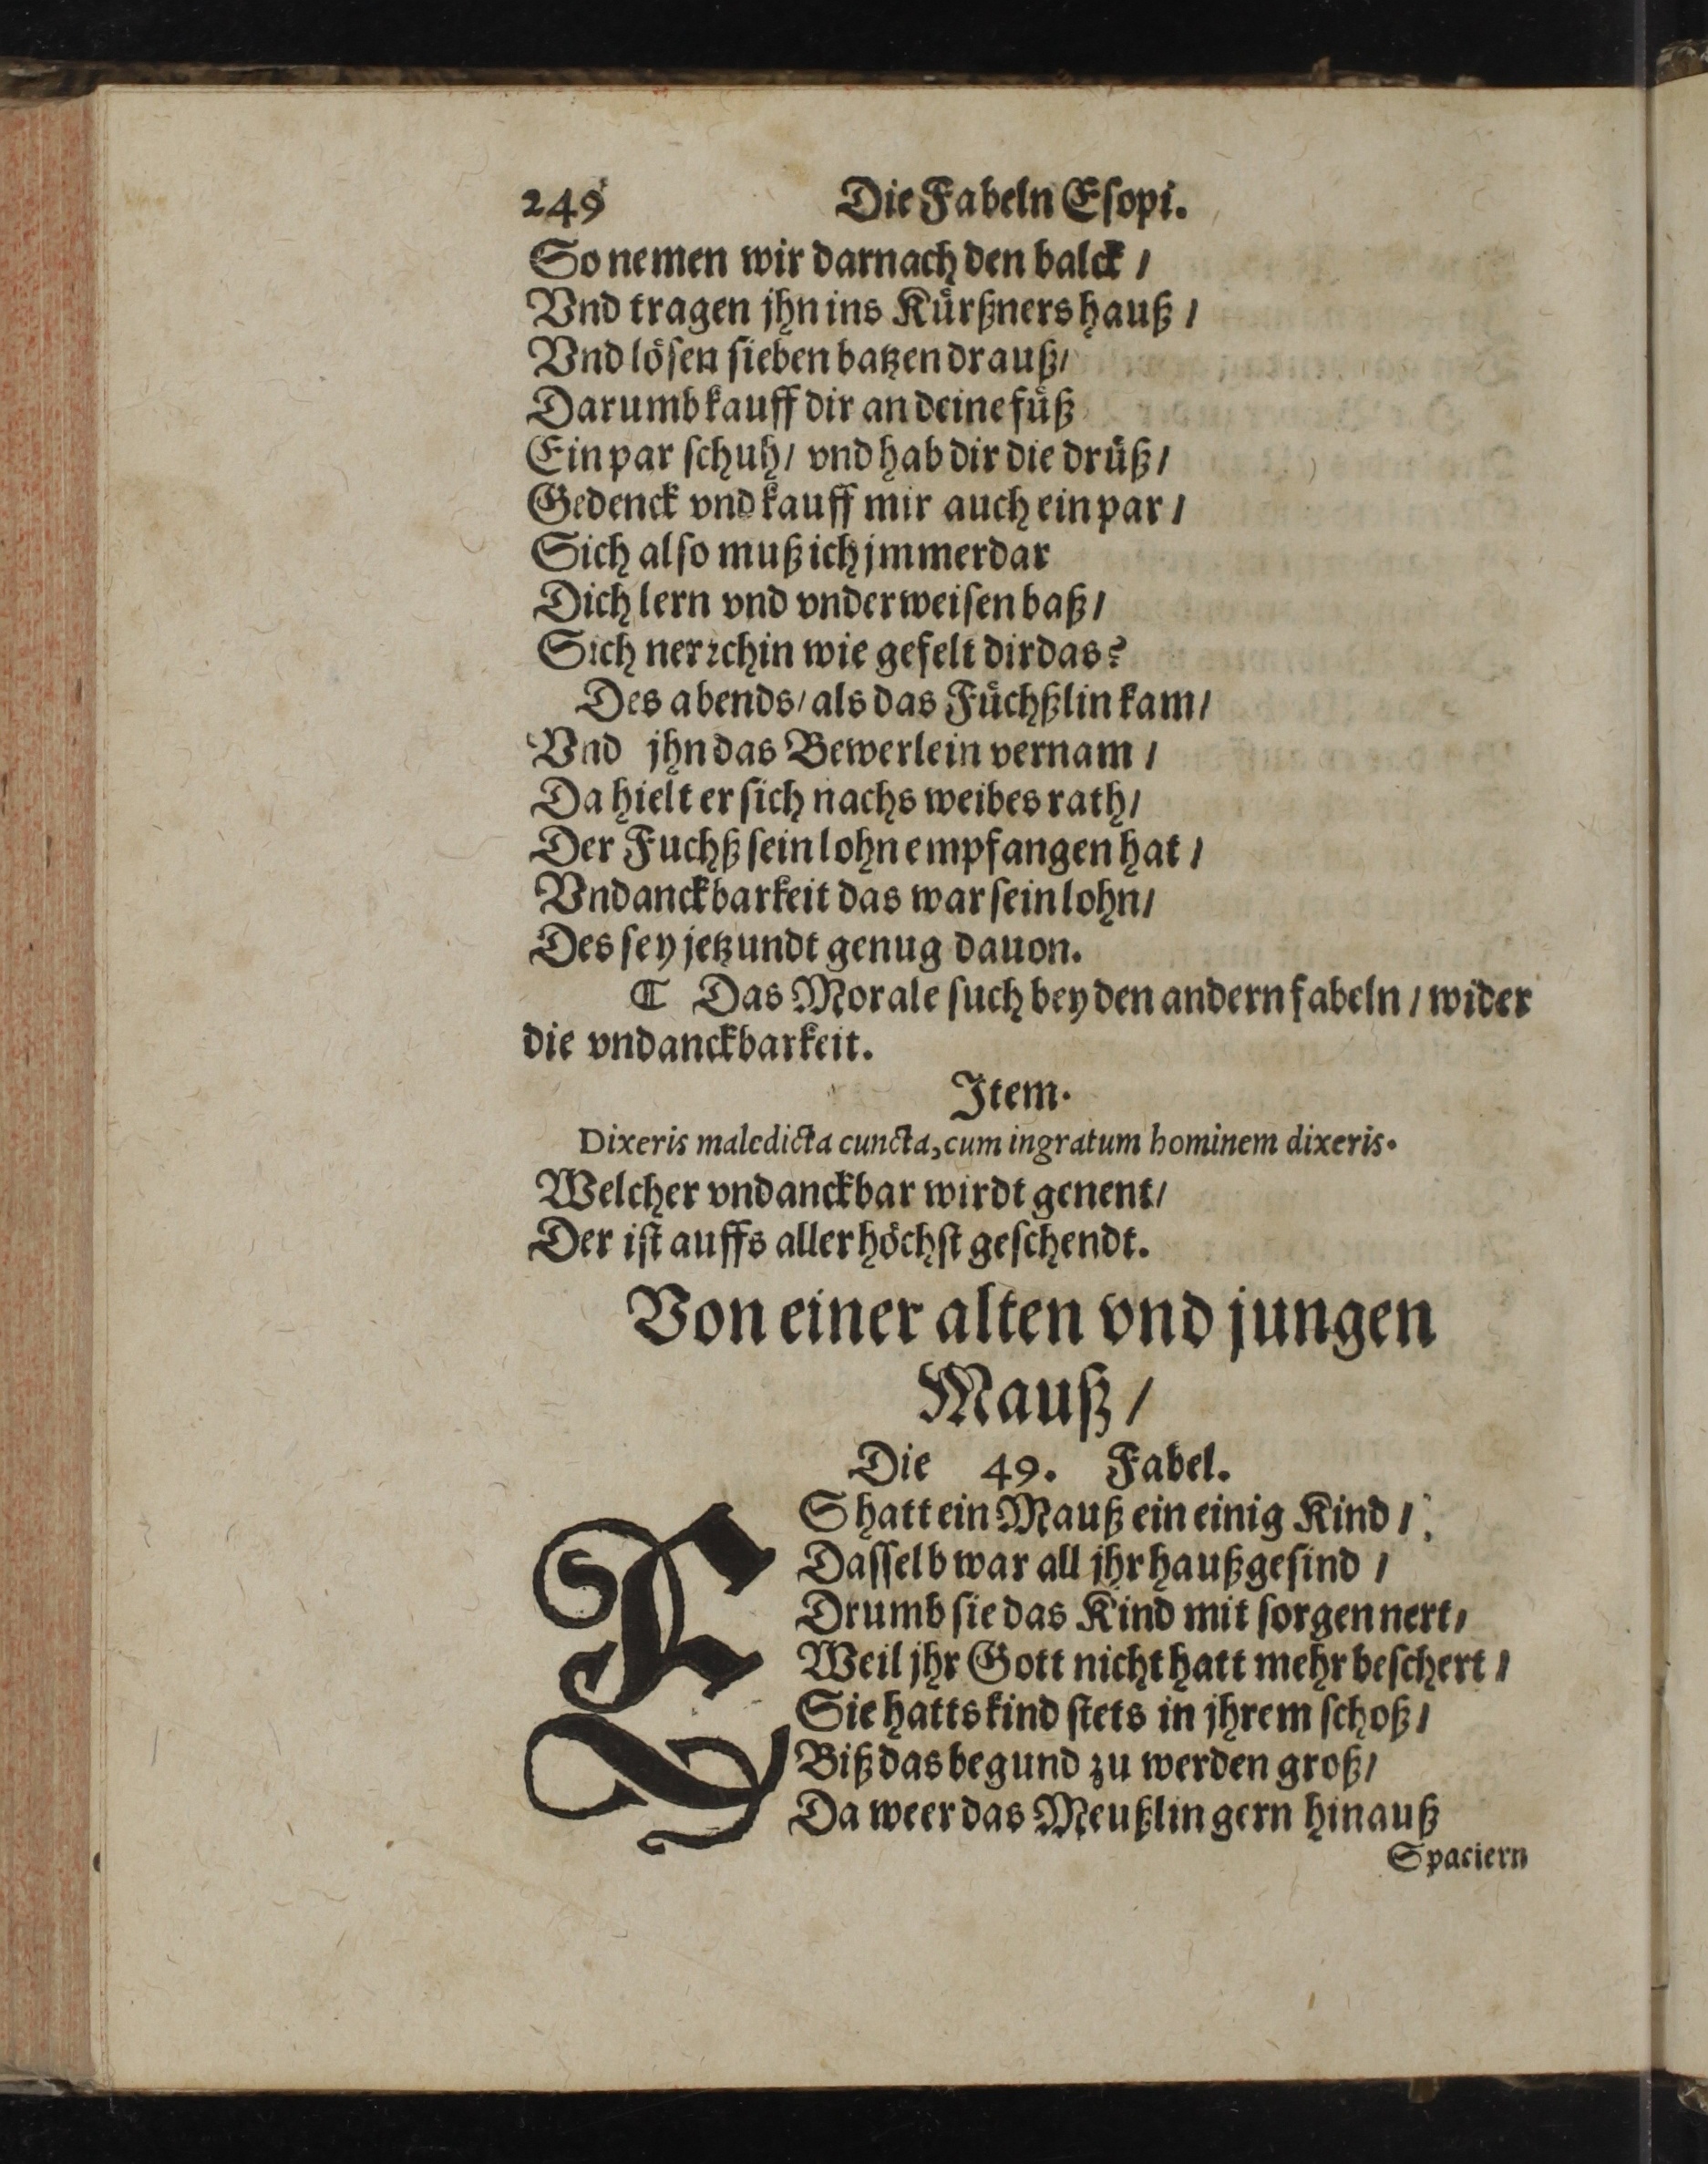 249 Die Fabeln Eſopi.
So nemen wir darnach den balck /
Vnd tragen jhn ins Kürßners hauß /
Vnd löſen ſieben batzen drauß/
Darumb kauff dir an deine füß
Ein par ſchuh/ vnd hab dir die drüß/
Gedenck vnd kauff mir auch ein par /
Sich alſo muß ich jmmerdar
Dich lern vnd vnderweiſen baß/
Sich nerrchin wie gefelt dir das?
Des abends/ als das Füchßlin kam/
Vnd jhn das Bewerlein vernam /
Da hielt er ſich nachs weibes rath/
Der Fuchß ſein lohn empfangen hat /
Vndanckbarkeit das war ſein lohn/
Des ſey jetzundt genug dauon.
ℭ Das Morale ſuch bey den andern fabeln / wider
die vndanckbarkeit.
Item.
Dixeris maledicta cuncta, cum ingratum hominem dixeris.
Welcher vndanckbar wirdt genent/
Der iſt auffs allerhöchſt geſchendt.
Von einer alten vnd jungen
Mauß /
Die 49. Fabel.
ES hatt ein Mauß ein einig Kind /
Daſſelb war all jhr haußgeſind /
Drumb ſie das Kind mit ſorgen nert/
Weil jhr Gott nicht hatt mehr beſchert /
Sie hatts kind ſtets in jhrem ſchoß/
Biß das begund zu werden groß/
Da weer das Meußlin gern hinauß
Spaciern